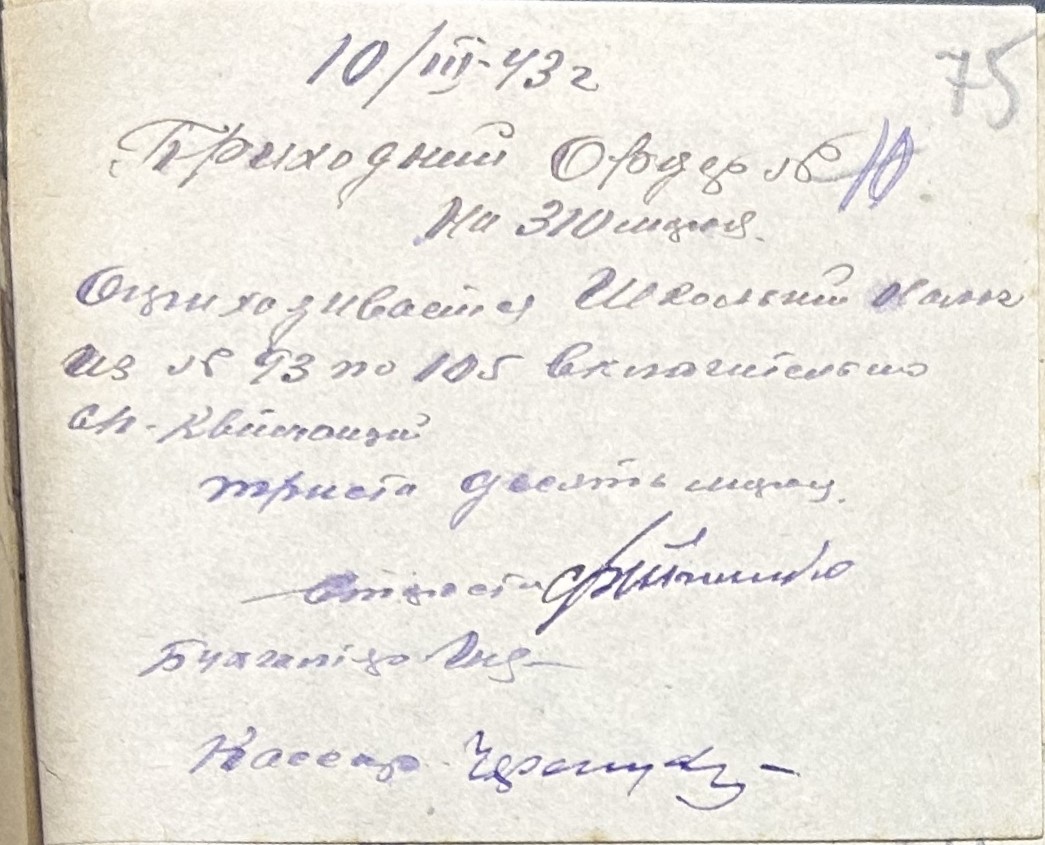 10/III-43 г
75
Приходний Ордер № 10
На 310 марок
Оприходивается Школьний налог
из № 93 по 105 включительно
сп-квитанций
триста десять марок.
Староста
Бухгалтер
Кассир